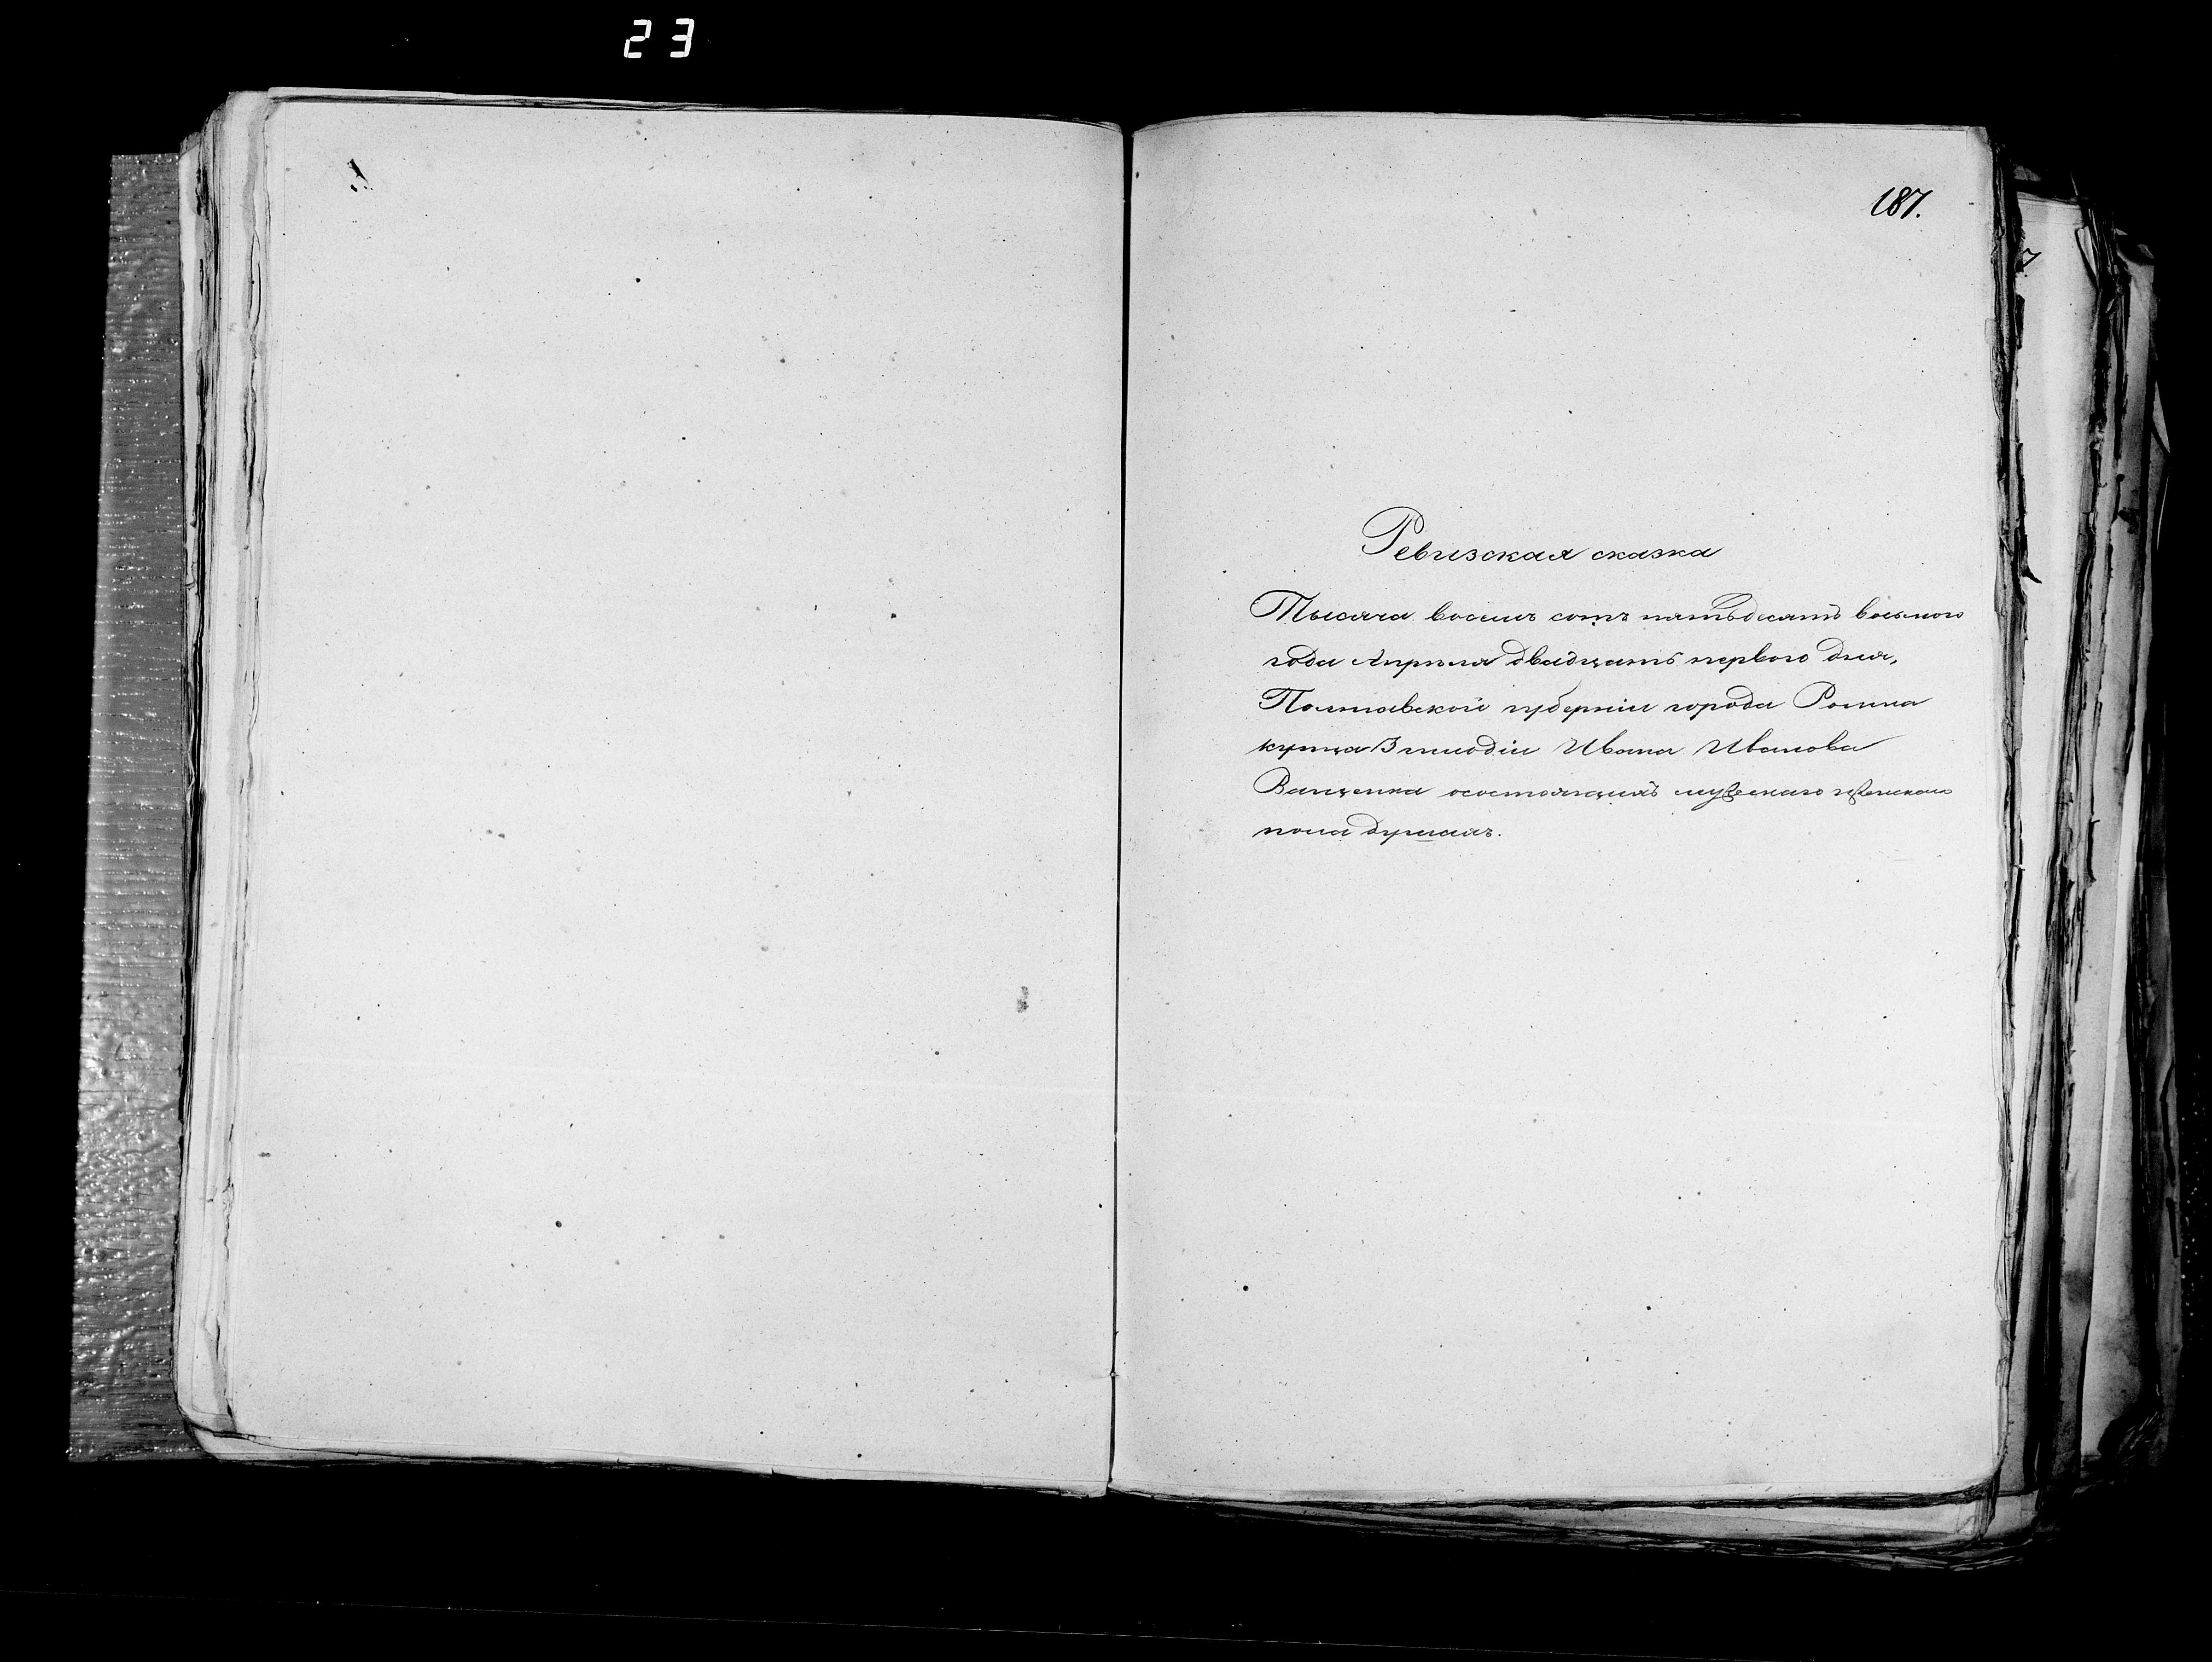 23
187.
Ревизская сказка
Тысяча восемь сотъ пятьдесятъ восьмого
года Апрѣля двадцать первого дня,
Полтавской губерніи города Ромна
купца 3 гильдіи Ивана Иванова
Ващенка осостоящихъ мужескаго и женскаго
пола душахъ.